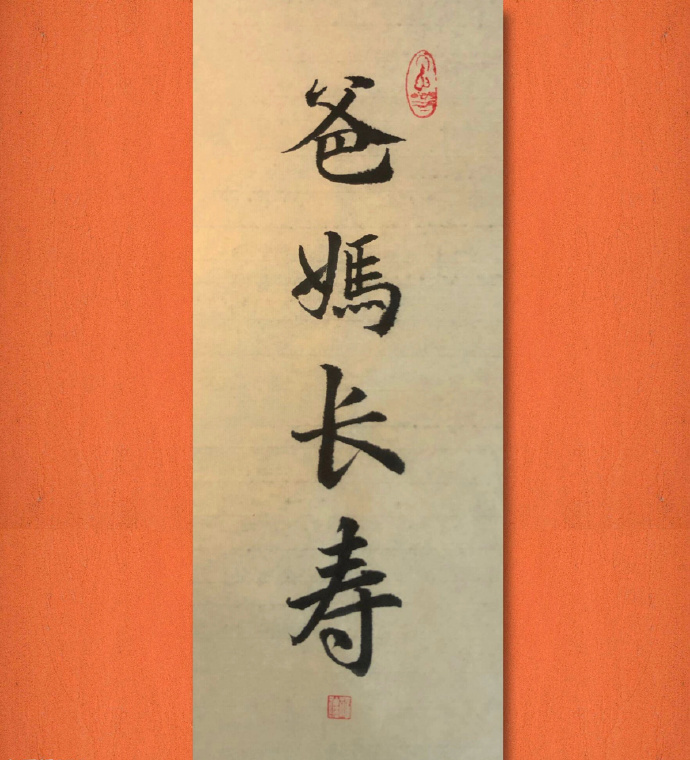 爸媽长寿